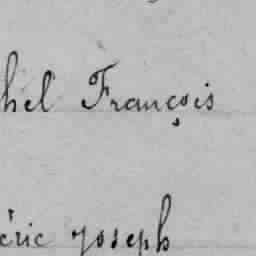 hel François
éric Joseph